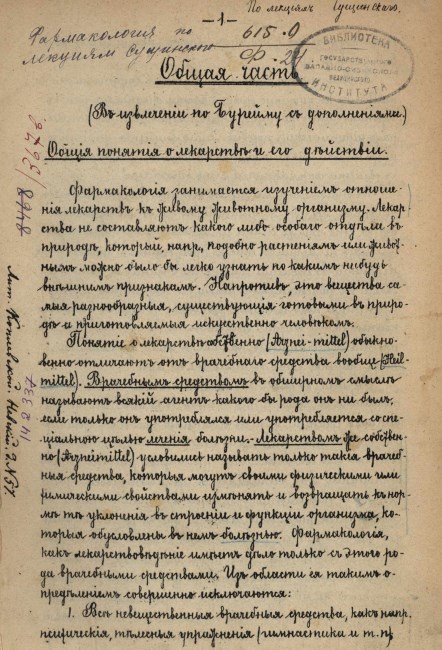 По лекціямъ Сущинскаго.
— 1 —
Фармакологія по
лекціямъ Сущинскаго
615.0
Ф 24
БИБЛИОТЕКА
ГОСУДАРСТВЕННОГО
ИНСТИТУТА
Общая часть
(Въ извлеченіи по Бухгейму съ дополненіями.)
Общія понятія о лекарствѣ и его дѣйствіи.
Фармакологія занимается изученіемъ отноше-
нія лекарствъ къ живому животному организму. Лекар-
ства не составляютъ какого либо особаго отдѣла въ
природѣ, который, напр., подобно растеніямъ или живот-
нымъ можно было бы легко узнать по какимъ нибудь
внѣшнимъ признакамъ. Напротивъ, это вещества са-
мыя разнообразныя, существующія готовыми въ приро-
дѣ и приготовляемыя искуственно человѣкомъ.
Понятіе о лекарствѣ собственно (Arznei-mittel) обыкно-
венно отличаютъ отъ врачебнаго средства вообще (Heil-
mittel). Врачебнымъ средствомъ въ обширномъ смыслѣ
называютъ всякій агентъ какого бы рода онъ ни былъ,
если только онъ употреблялся или употребляется со спе-
ціальною цѣлью леченія болѣзни. Лекарствомъ же собствен-
но (Arzneimittel) условились называть только такія врачеб-
ныя средства, которыя могутъ своими физическими или
химическими свойствами измѣнять и возвращать къ нор-
мѣ тѣ уклоненія въ строеніи и функціи организма, ко-
торыя обусловлены въ немъ болѣзнью. Фармакологія,
какъ лекарствовѣдѣніе имѣетъ дѣло только съ этого ро-
да врачебными средствами. Изъ области ея такимъ о-
предѣленіемъ совершенно исключаются:
1. Всѣ невещественныя врачебныя средства, какъ напр.
психическія, тѣлесныя упражненія (гимнастика и т. п.),